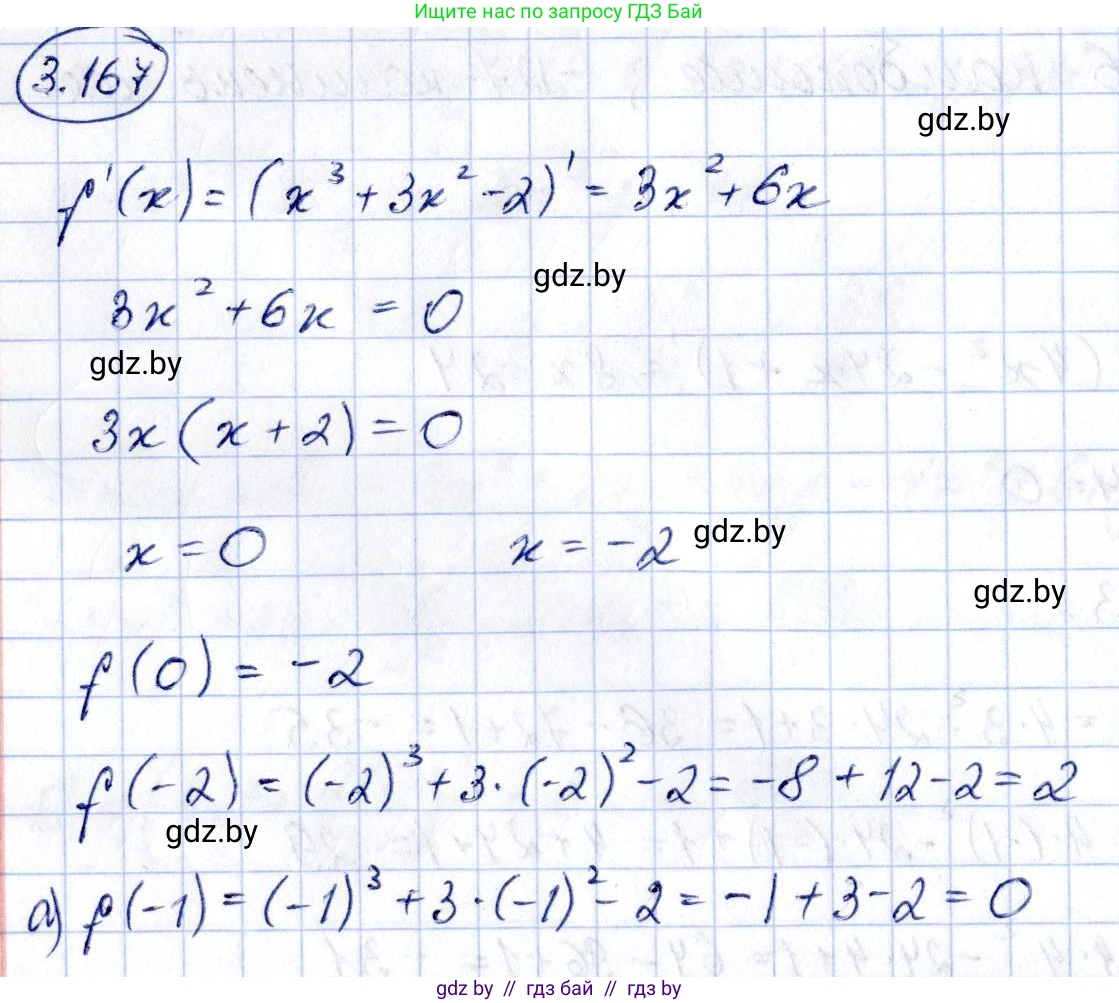 Ищите нас по запросу ГДЗ Бай
3.167
gdz.by
f'(x) = (x³ + 3x² - 2)' = 3x² + 6x
gdz.by
3x² + 6x = 0
gdz.by
3x(x + 2) = 0
x = 0 x = -2 gdz.by
gdz.by
f(0) = -2
f(-2) = (-2)³ + 3·(-2)² - 2 = -8 + 12 - 2 = 2
gdz.by
а) f(-1) = (-1)³ + 3·(-1)² - 2 = -1 + 3 - 2 = 0
gdz.by // гдз бай // gdz by